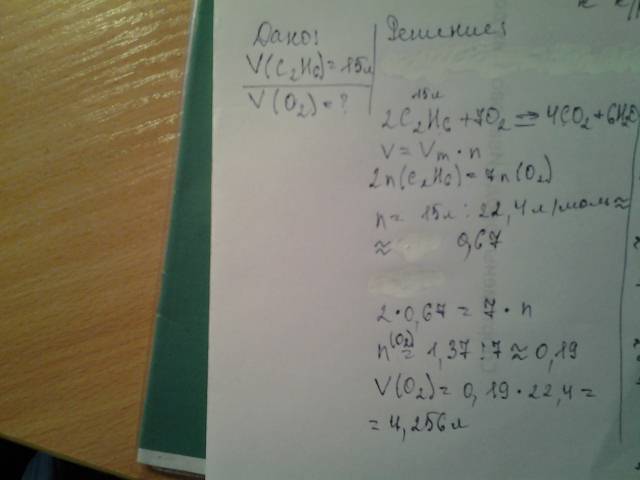 Дано:
V(C₂H₆)=15л
V(O₂)=?
Решение:
15л
2C₂H₆+7O₂=4CO₂+6H₂O
V=Vm·n
2n(C₂H₆)=7n(O₂)
n=15л:22,4л/моль≈
≈ 0,67
2·0,67=7·n
n(O₂)=1,37:7≈0,19
V(O₂)=0,19·22,4=
=4,256л